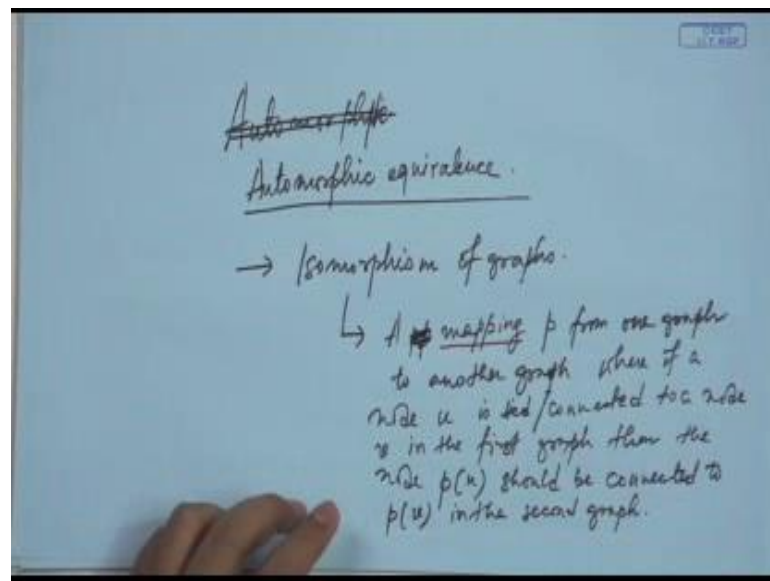 CET
I.I.T. KGP
Automorphic
Automorphic equivalence.
→ Isomorphism of graphs.
↳ A mapping p from one graph
to another graph where if a
node u is tied/connected to a node
v in the first graph then the
node p(u) should be connected to
p(v) in the second graph.